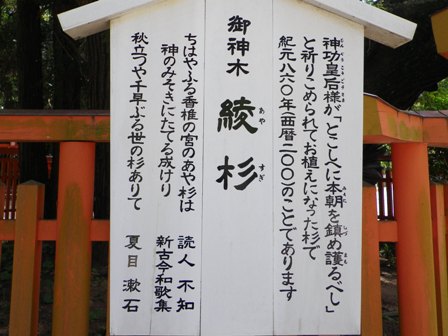 御神木
綾杉
神功皇后様が「とこしへに本朝を鎮め護るべし」
と祈りこめられてお植えになった杉で
紀元八六〇年(西暦二〇〇)のことであります
ちはやふる香椎の宮のあや杉は
神のみそきにたてる成けり
読人不知
新古今和歌集
秋立つや千早ぶる世の杉ありて
夏目漱石